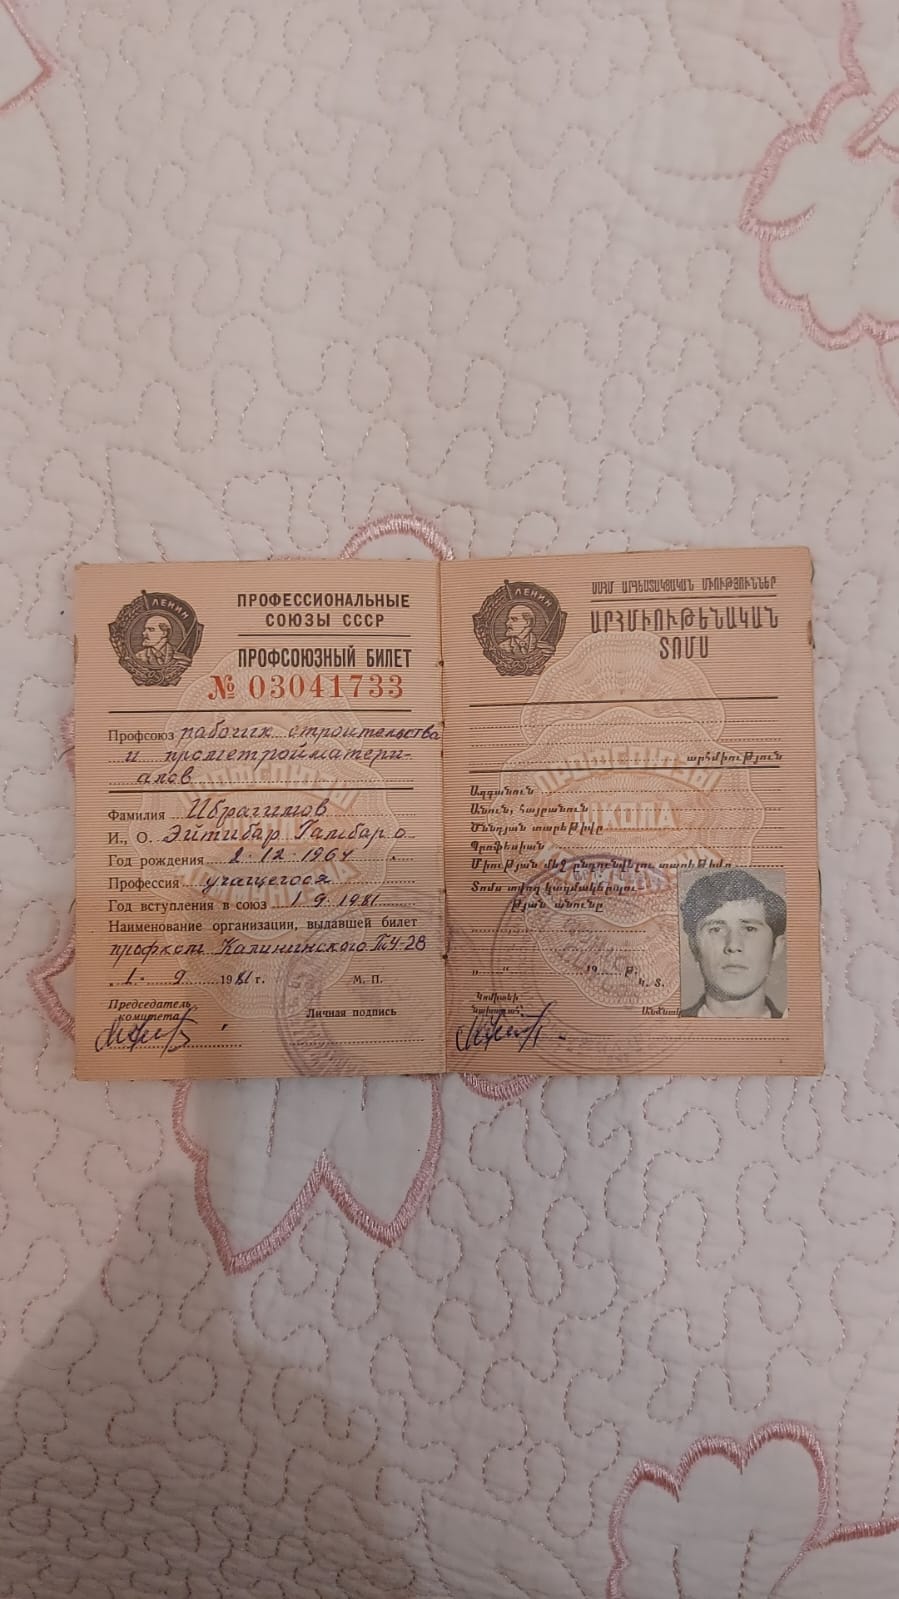 ЛЕНИН
ПРОФЕССИОНАЛЬНЫЕ
СОЮЗЫ СССР
ПРОФСОЮЗНЫЙ БИЛЕТ
№ 03041733
Профсоюз рабочих строительства
и промстройматери-
алов
Фамилия Ибрагимов
И., О. Эйтибар Гамбар о
Год рождения 2·12·1964
Профессия учащегося
Год вступления в союз 1 9. 1981
Наименование организации, выдавшей билет
профком Калининского ТУ-28
1· 9 1981 г. М. П.
Председатель
комитета
Личная подпись
ЛЕНИН
ՍՍՀՄ ԱՐՀԵՍՏԱԿՑԱԿԱՆ ՄԻՈՒԹՅՈՒՆՆԵՐ
ԱՐՀՄԻՈՒԹԵՆԱԿԱՆ
ՏՈՄՍ
արհմիություն
ПРОФСОЮЗЫ
ШКОЛА
Ազգանուն
Անուն, հայրանուն
Ծննդյան տարեթիվը
Պրոֆեսիան
Միության մեջ ընդունվելու տարեթիվը
Տոմս տվող կազմակերպու-
թյան անունը
„ “ 19 թ.
Կ. Տ.
Կոմիտեի
նախագահ